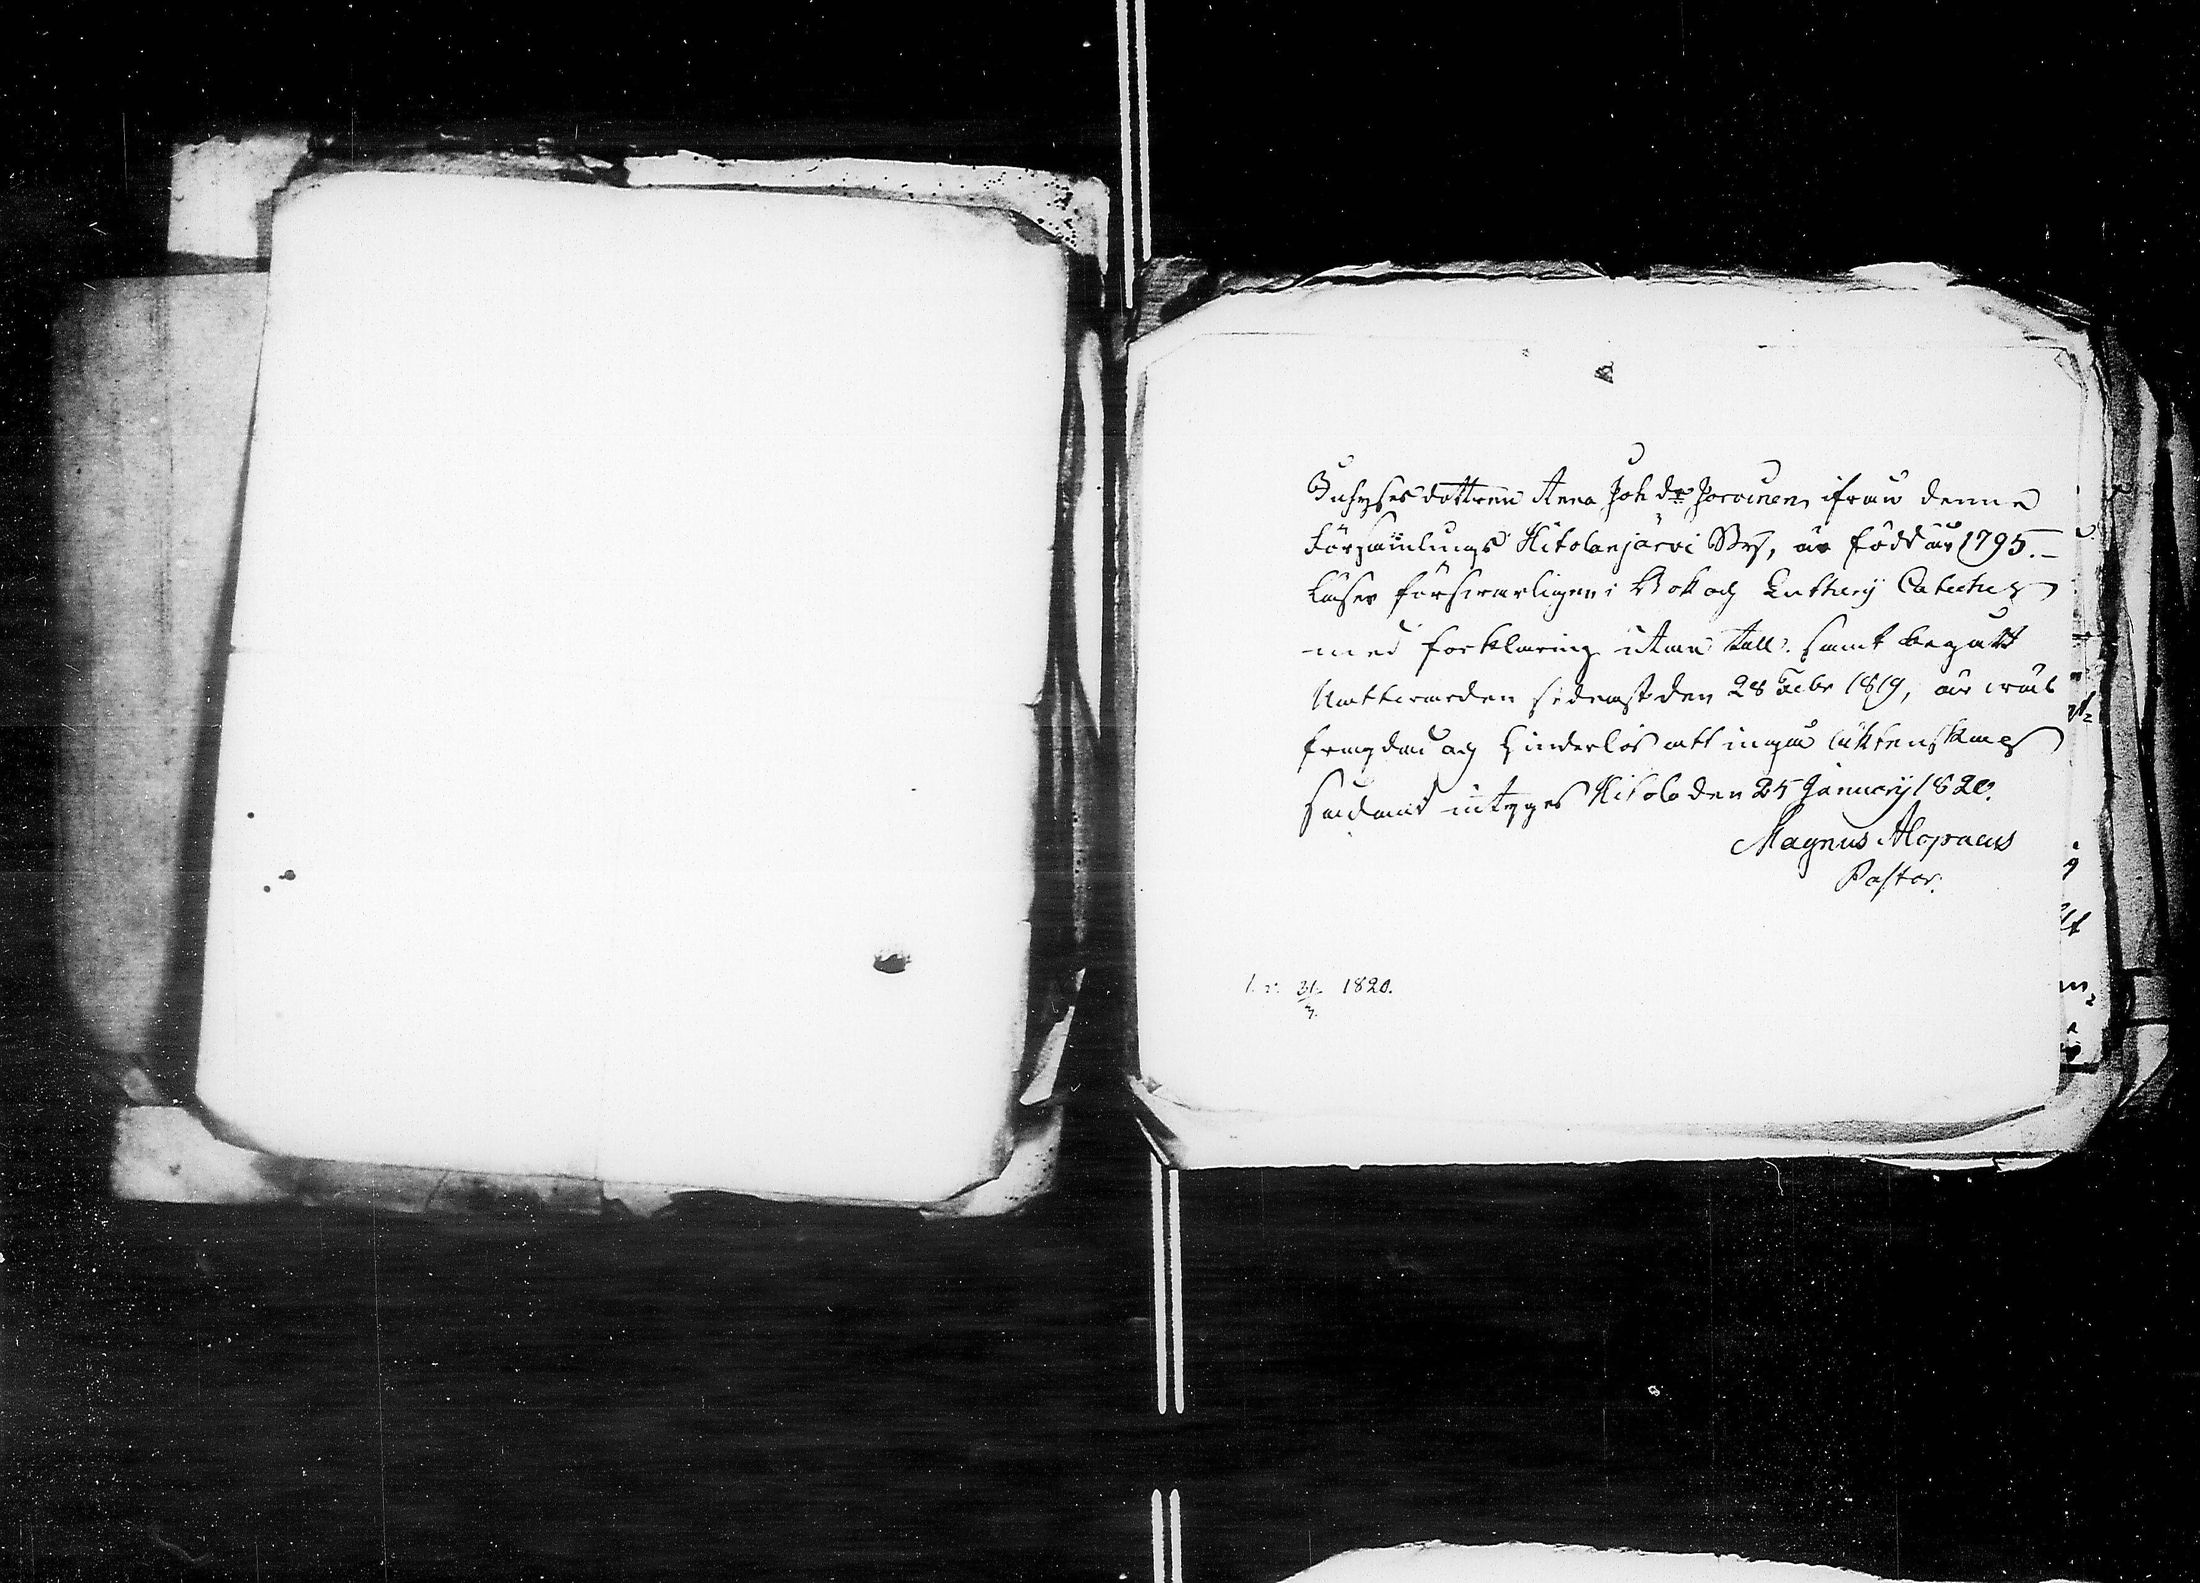 Inhyses dottren Anna Joh. dr Jorvinen ifrån denne
Församlings Hitolanjärvi By, är född år 1795. –
Läser förswarligen i Bok och Lutherij Cateches
med forklaring utan tall. samt begått
Nattvarden sidenst den 28 Febr 1819, är wäl
fregdad och hinderlös att ingå äktenskap
Sådant intyges Hitola den 25 Januarij 1820.
Magnus Alopaeus
Pastor.
l. v. 31/3. 1820.